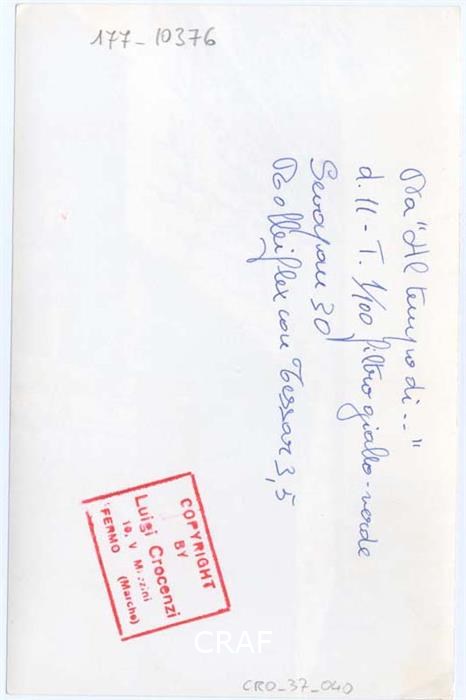 177-10376
Da "Al tempo di.."
d. 11 - T. 1/100 filtro giallo-verde
30
Rolleiflex con Tessar 3,5
COPYRIGHT
BY
Luigi Crocenzi
10, V
FERMO (Marche)
CRAF
CRO_37_040